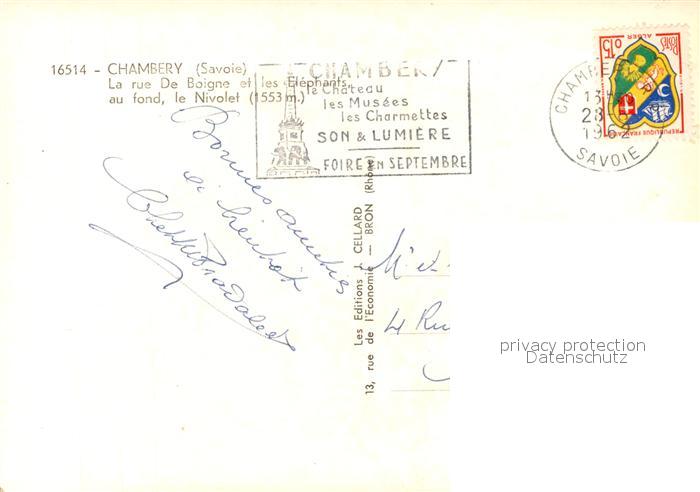 16514 - CHAMBERY (Savoie)
La rue De Boigne et les Eléphants,
au fond, le Nivolet (1553 m.)
CHAMBERY
le Château
les Musées
les Charmettes
SON & LUMIÈRE
FOIRE EN SEPTEMBRE
CHAMBERY
13H
28
1962
SAVOIE
0,15
POSTES
ALGER
REPUBLIQUE FRANÇAISE
Bonnes amitiés
et bientôt
Les Editions J. CELLARD
13, rue de l'Economie — BRON (Rhône)
4 Ru
privacy protection
Datenschutz